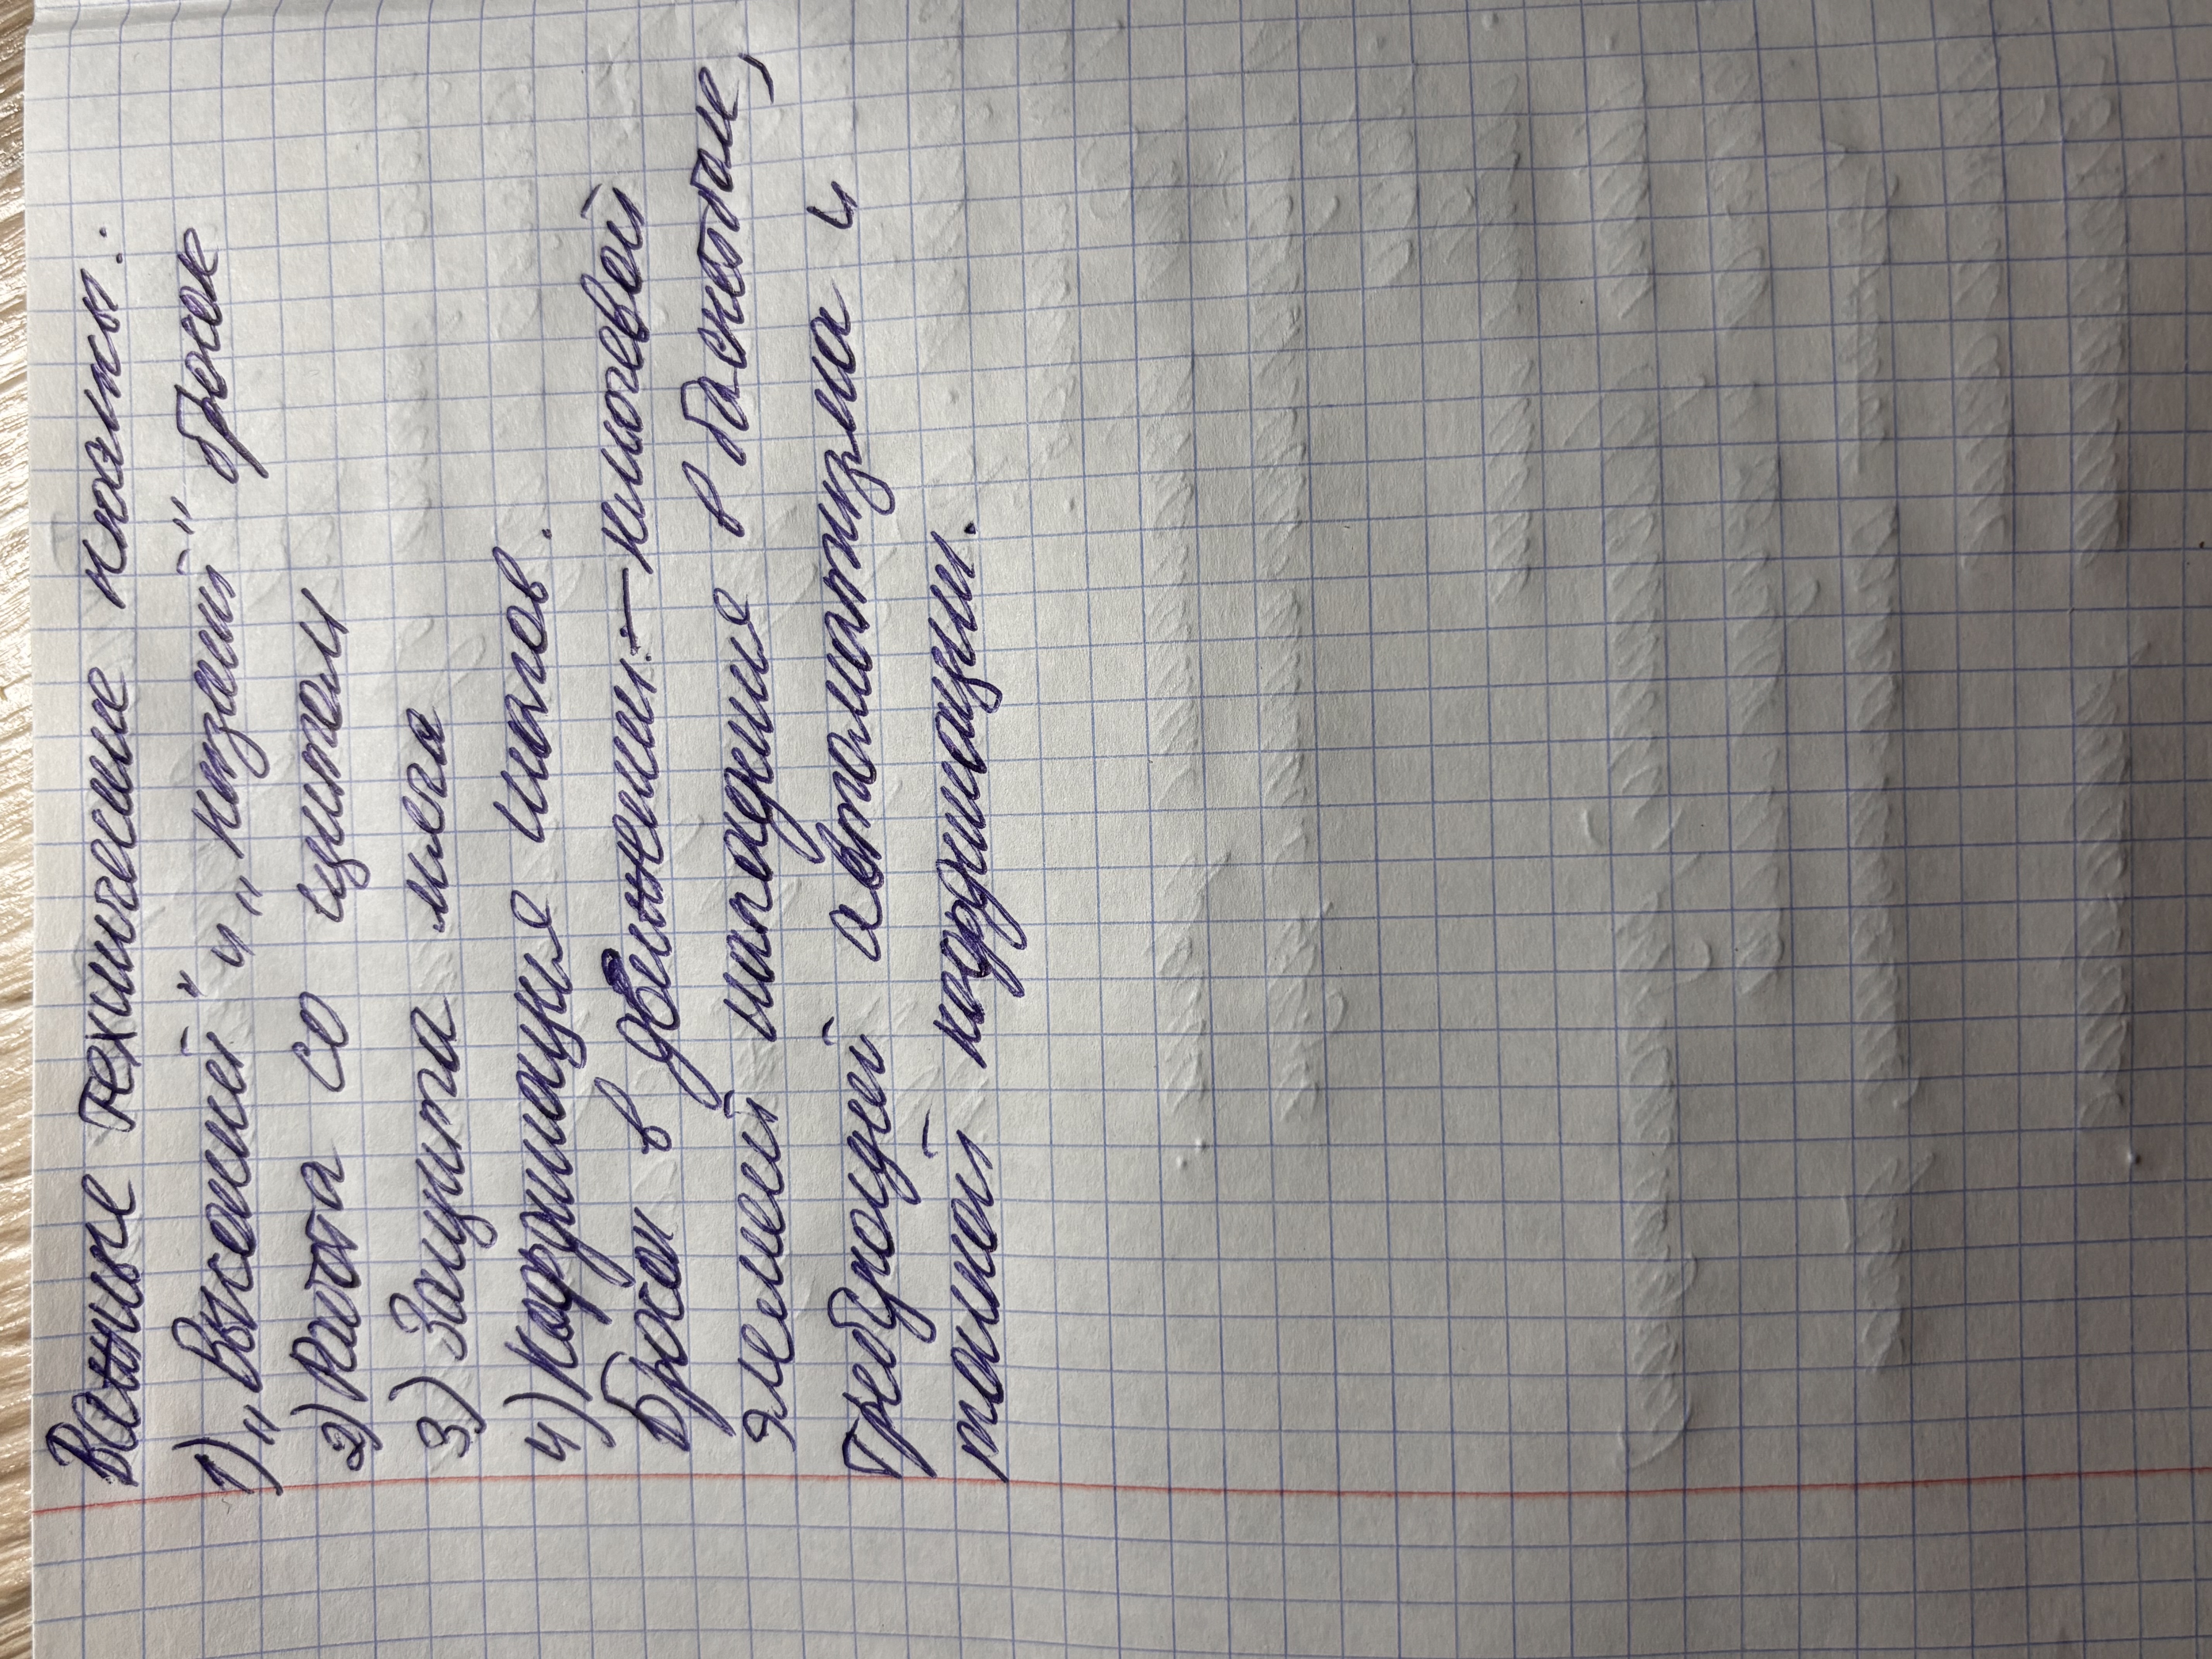 Важные технические нюансы:
1) „Высокий" и „низкий" бросок
2) Работа со щитом
3) Защита мяча
4) Координация шагов.
Бросок в движении. – ключевой
элемент нападения в баскетболе,
требующий автоматизма и
полной координации.